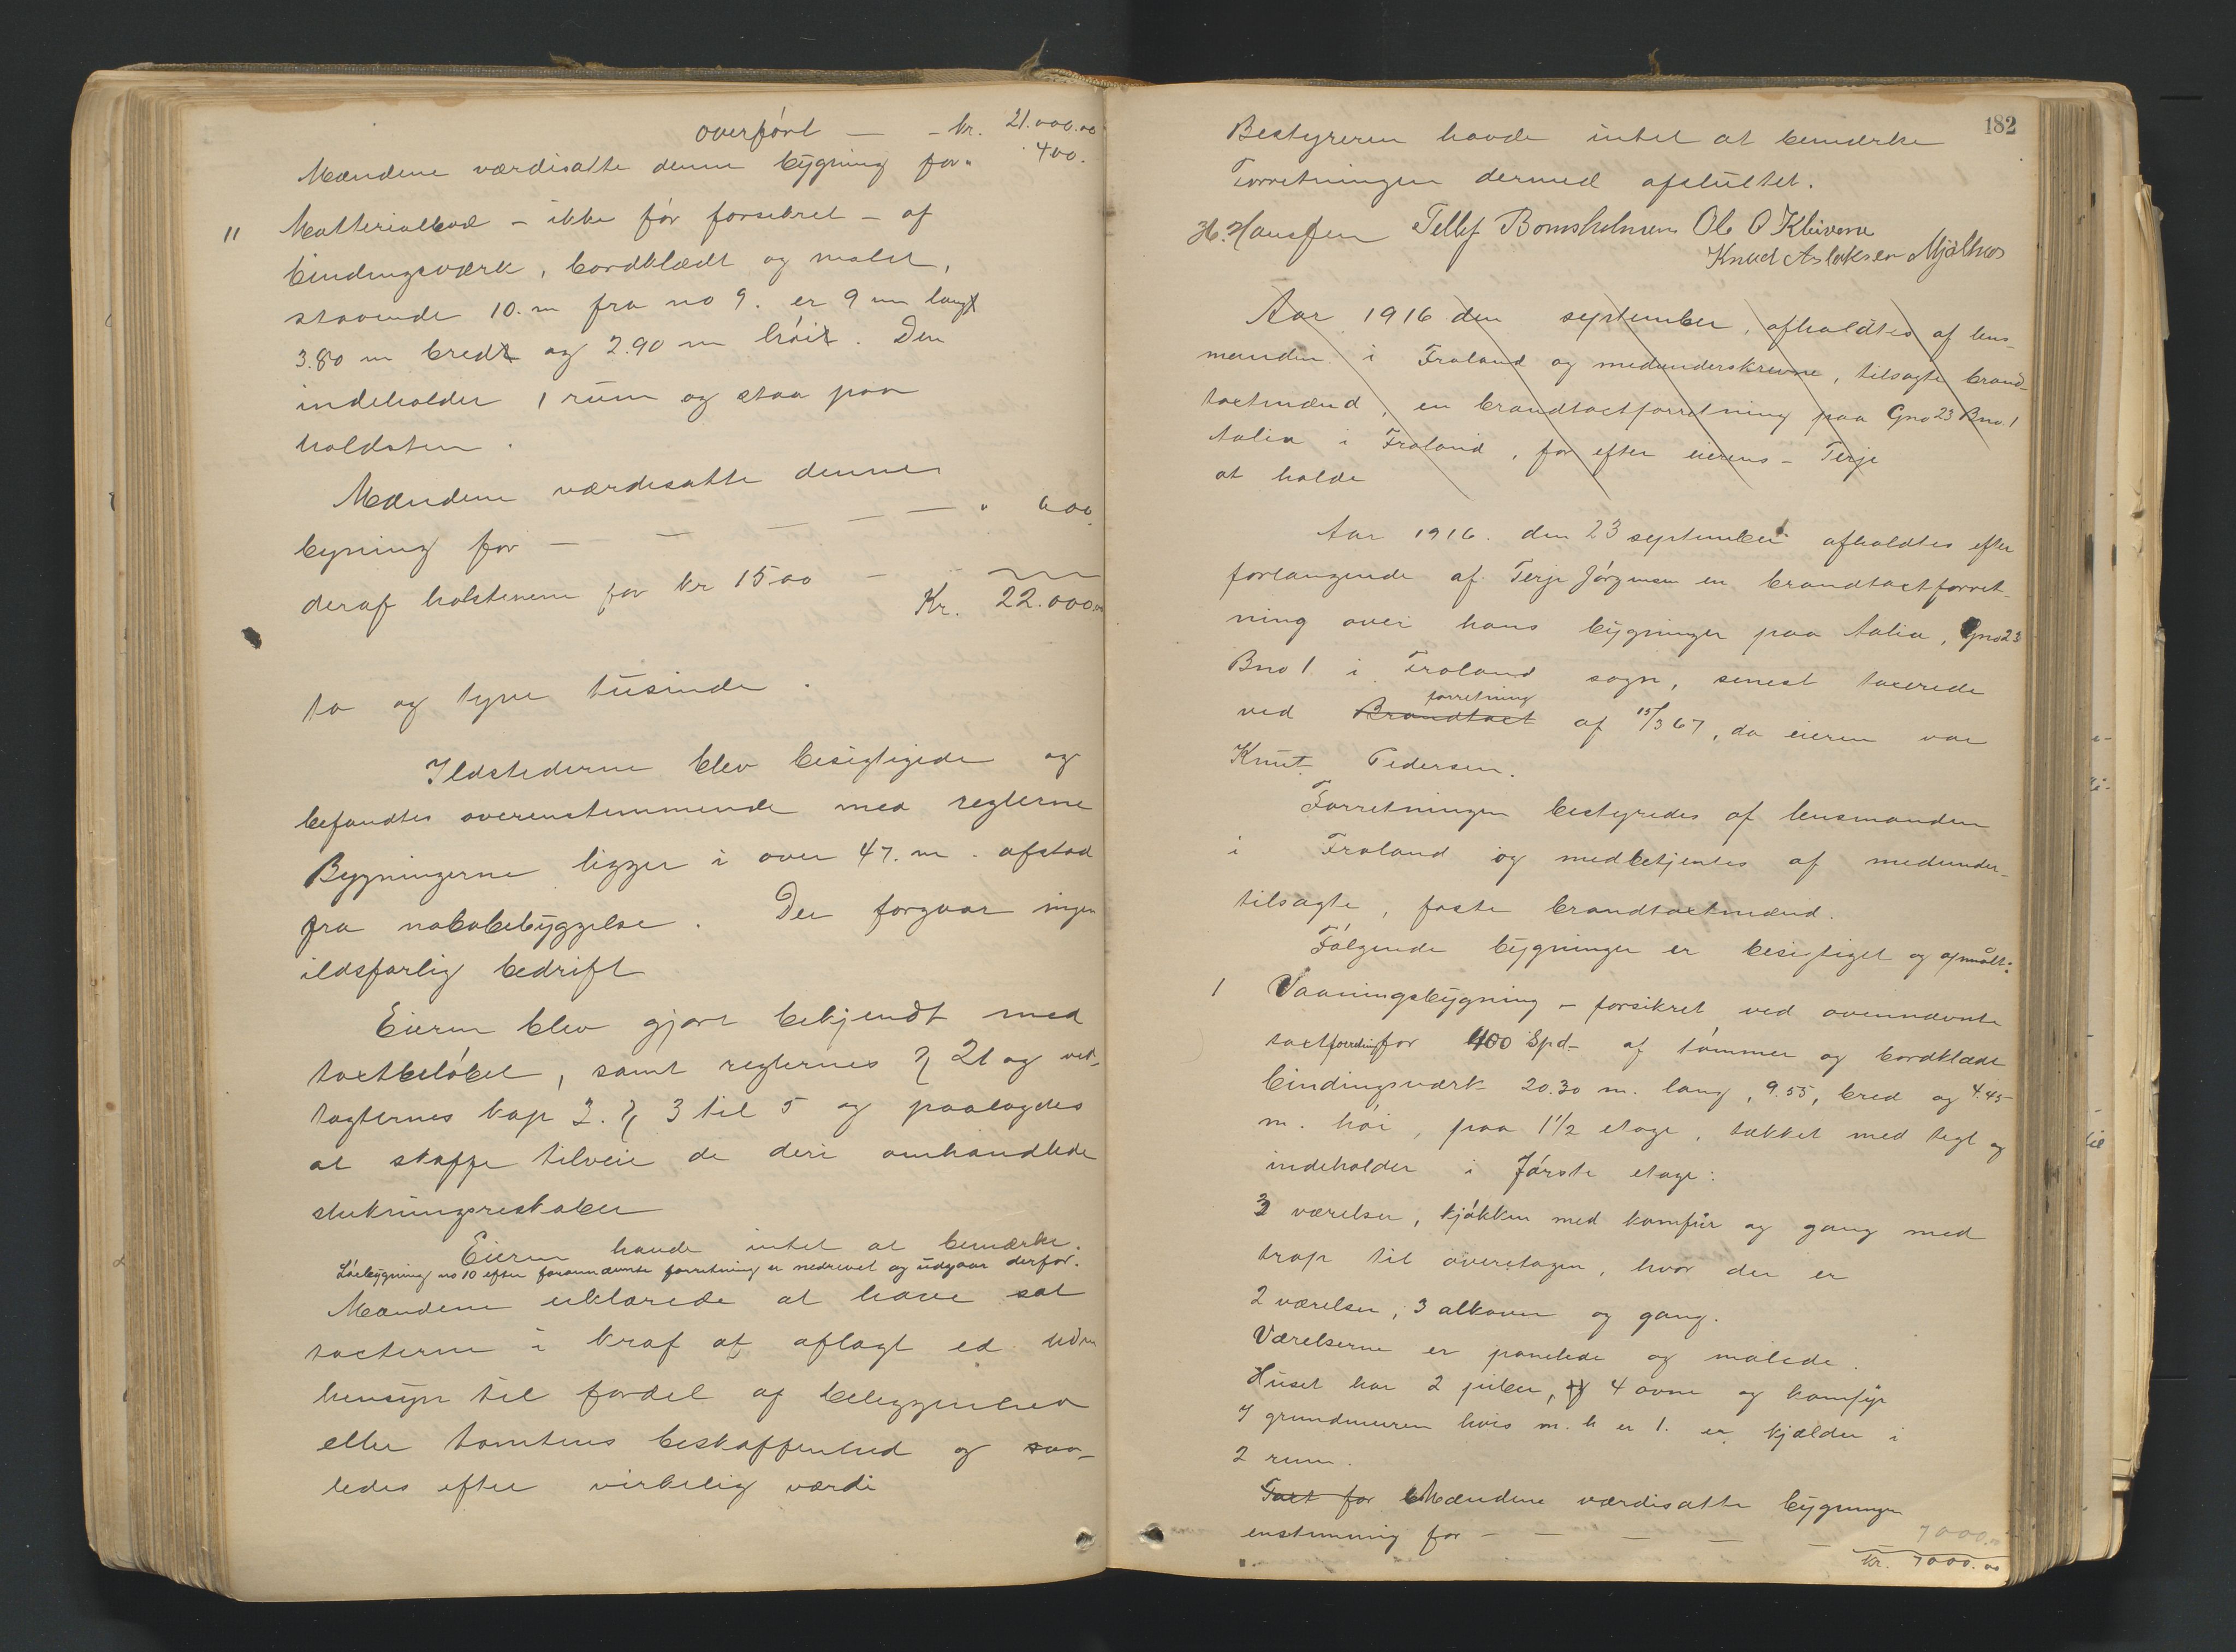 overført — - kr. 21.000.00
Mændene værdisatte denne bygning for " 400.
11 Matterialbod - ikke før forsikret - af
bindingsværk, bordklædt og malet,
staaende 10. m fra no 9. er 9 m langt
3.80 m bredt og 2.90 m høit. Den
indeholder 1 rum og staa paa
holdsten.
Mændene værdisatte denne
bygning for — — — — — " 600.
deraf holstenene for kr 1500 —
Kr. 22.000.00
to og tyve tusinde.
Ildstederne blev besigtigede og
befandtes overenstemmende med reglerne
Bygningerne ligger i over 47. m. afstad
fra nabobebyggelse. Der forgaar ingen
ildsfarlig bedrift
Eieren blev gjort bekjendt med
taxtbeløbet, samt reglernes § 21 og ved-
tægternes kap 3. § 3 til 5 og paalagdes
at skaffe tilveie de deri omhandlede
slukningsreskaber
Eieren havde intet at bemærke.
Løebygning no 10 efter forannævnte forretning er nedrevet og udgaar derfor.
Mændene erklærede at have sat
taxterne i kraf af aflagt ed uden
hensyn til fordel af beliggenhed
eller tomtens beskaffenhed og saa-
ledes efter virkelig værdi
182
Bestyreren havde intet at bemærke
Forretningen dermed afsluttet.
H. Hanssen Tellef Bomsholmen Ole O Kleivene
Knud Aslaksen Mjølhus
Aar 1916 den september, afholdtes af lens-
manden i Froland og medunderskrevne, tilsagte brand-
taxtmænd, en brandtaxtforretning paa Gno 23 Bno. 1
Aalia i Froland, for efter eierens - Terje
at holde
Aar 1916. den 23 september afholdtes efter
forlangende af Terje Jørgensen en brandtaxtforret-
ning over hans bygninger paa Aalia, Gno 23
Bno 1 i Froland sogn, senest taxerede
forretning
ved Brandtaxt af 15/3 67, da eieren var
Knut Pedersen.
Forretningen bestyredes af lensmanden
i Froland og medbetjentes af medunder-
tilsagte, faste brandtaxtmænd.
Følgende bygninger er besigtiget og opmålt:
1 Vaaningsbygning - forsikret ved ovennævnte
taxtforretning for 400 Spd - af tømmer og bordklædt
bindingsværk 20.30 m. lang, 9.55, bred og 4.45
m. høi, paa 1 1/2 etage, tækket med tegl og
indeholder i første etage:
3 værelser, kjøkken med komfür og gang med
trap til overetagen, hvor der er
2 værelser, 3 alkover og gang.
Værelserne er panelede og malede.
Huset har 2 piber, og 4 ovne og komfyr
I grundmuren hvis m. h er 1. er kjælder i
2 rum.
Taxt for Mændene værdisatte bygningen
enstemmig for - — — — — 7000.00
kr. 7000.00